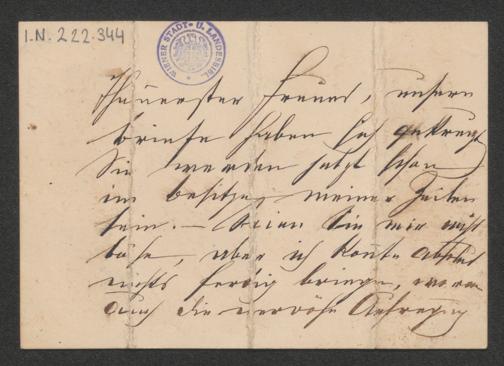 I.N. 222.344
WIENER STADT- U. LANDESBIBL.
Theuerster Freund, unsere
Briefe haben sich gekreuzt
Sie werden jetzt schon
im Besitze meiner Zeilen
sein. – Seien Sie mir nicht
böse, aber ich konnte absolut
nichts fertig bringen, woran
auch die nervöse Aufregung